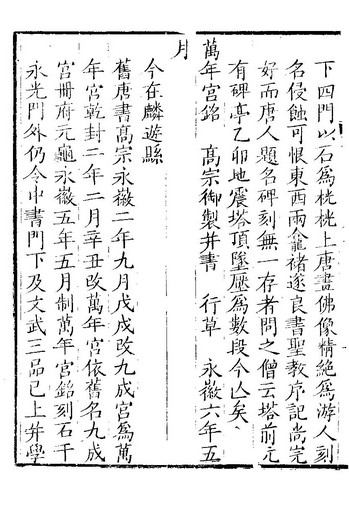 下四門以石爲桄桄上唐畫佛像精絶爲游人刻
名侵蝕可恨東西兩龕褚遂良書聖教序記尚完
好而唐人題名碑刻無一存者問之僧云塔前元
有碑亭乙卯地震塔頂墜壓爲數段今亾矣
萬年宫銘 高宗御製并書 行草 永徽六年五
月
今在麟遊縣
舊唐書高宗永徽二年九月戊戌改九成宫爲萬
年宫乾封二年二月辛丑改萬年宫依舊名九成
宫冊府元龜永徽五年五月制萬年宫銘刻石于
永光門外仍令中書門下及文武三品已上并學